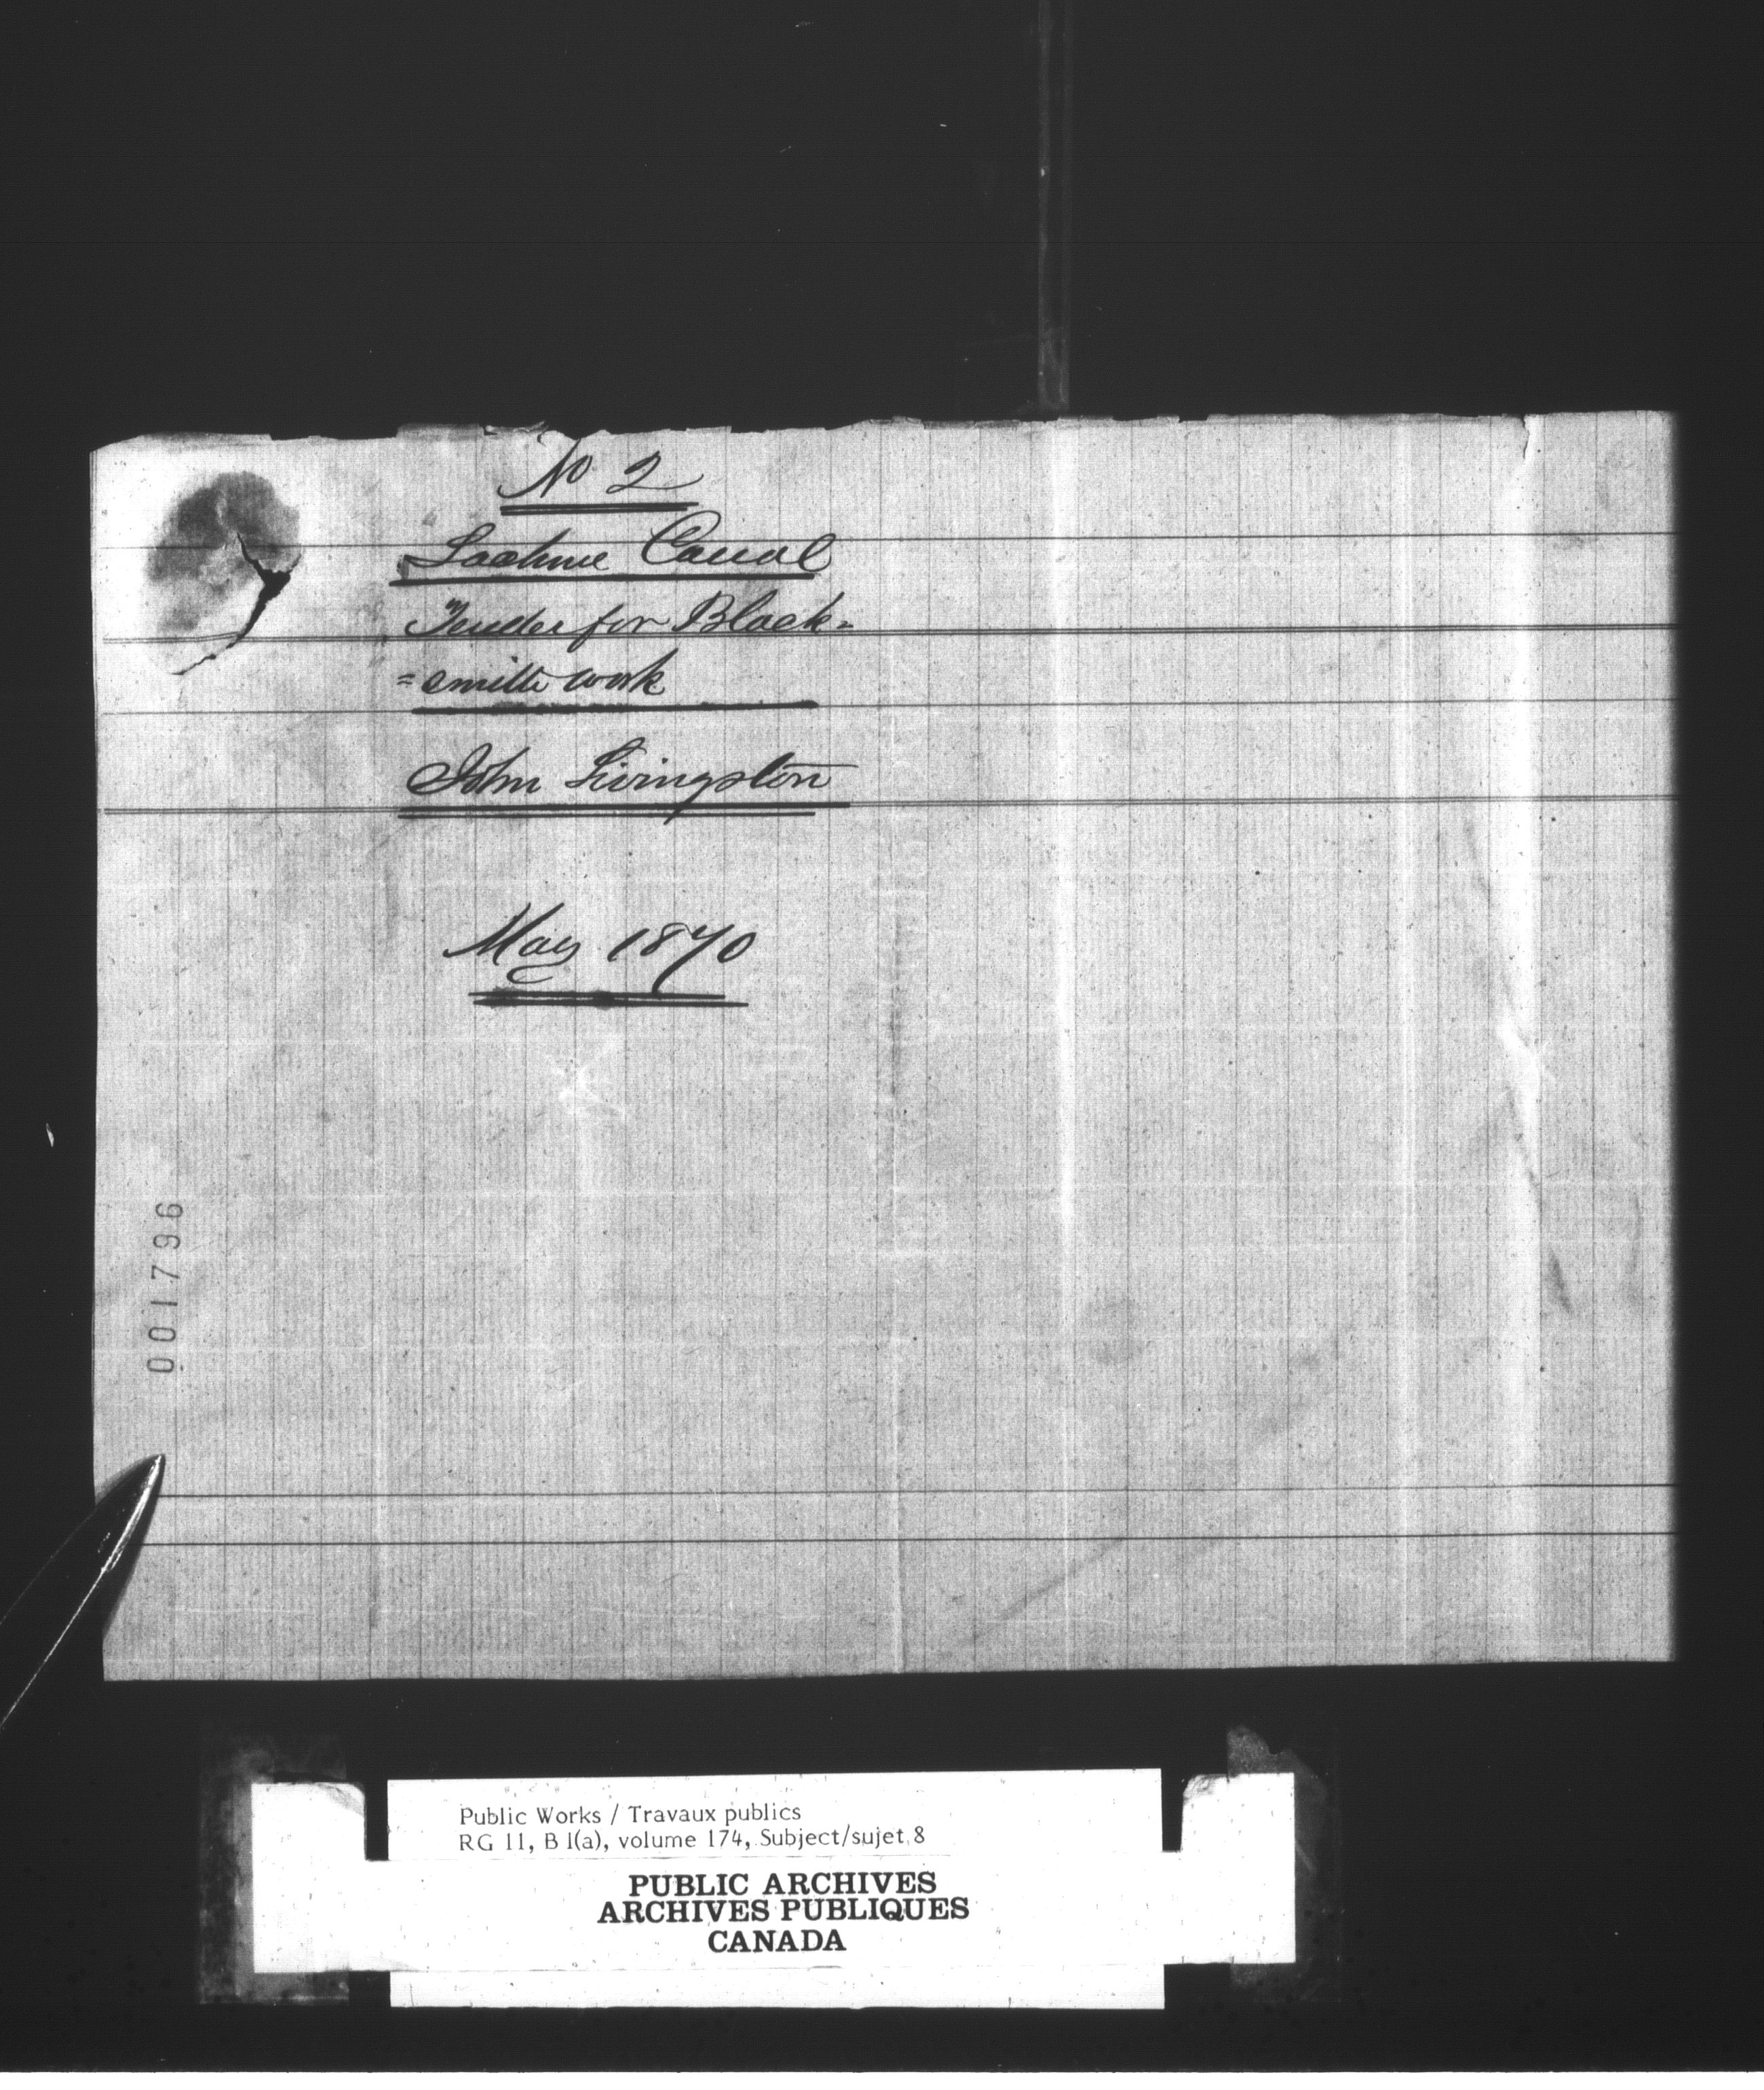 No 2
Lachine Canal
Tender for Black=
=smith work
John Livingston
May 1870
001796
Public Works / Travaux publics
RG 11, B 1(a), volume 174, Subject/sujet 8
PUBLIC ARCHIVES
ARCHIVES PUBLIQUES
CANADA